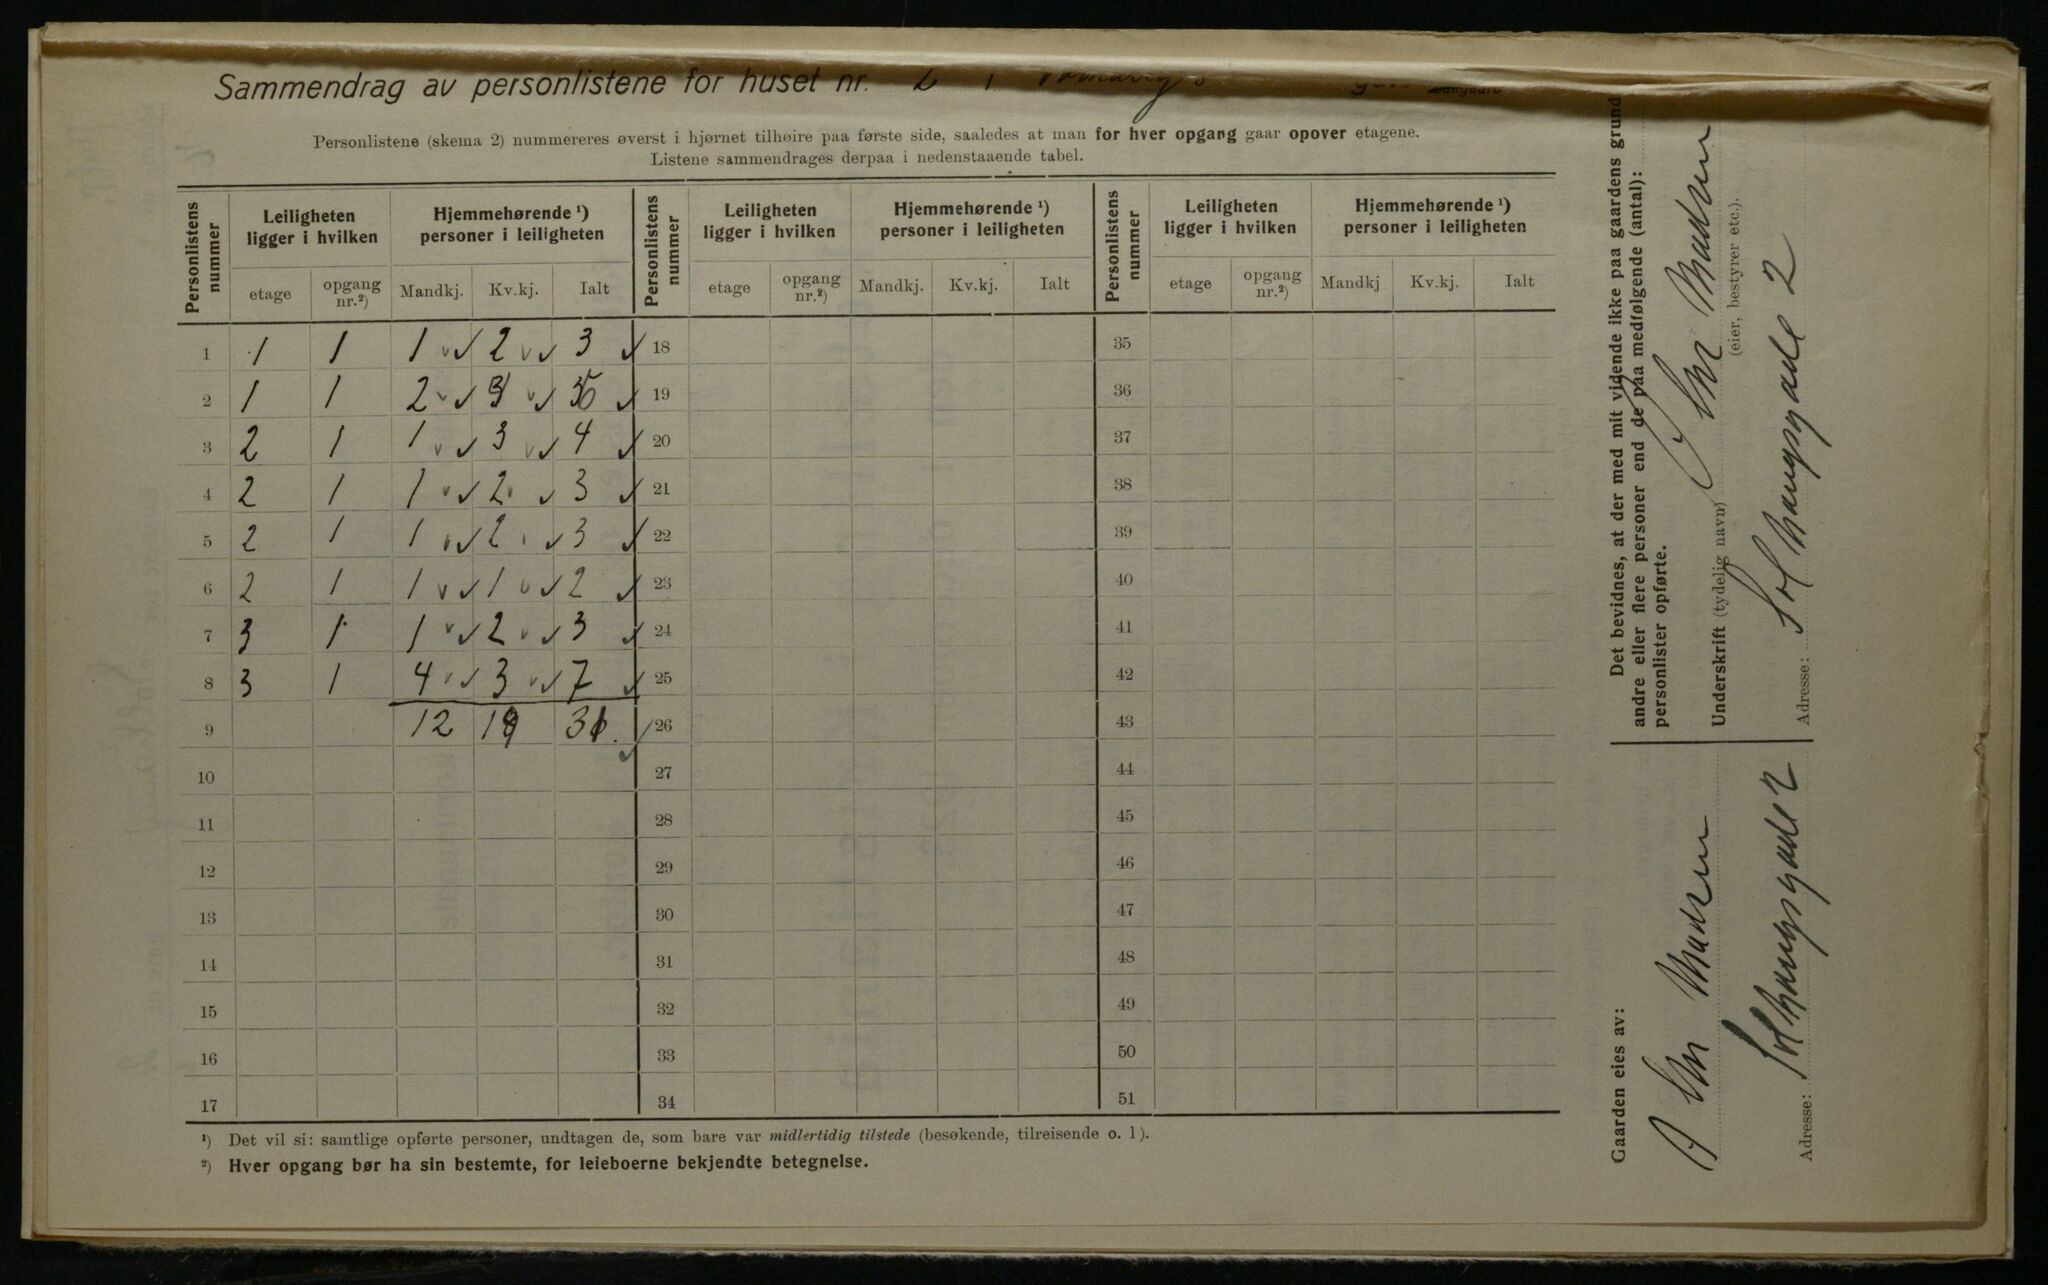 Sammendrag av personlistene for huset nr. 2 i
Personlistene (skema 2) nummereres øverst i hjørnet tilhøire paa første side, saaledes at man for hver opgang gaar opover etagene.
Listene sammendrages derpaa i nedenstaaende tabel.
Personlistens nummer | Leiligheten ligger i hvilken | Hjemmehørende ¹) personer i leiligheten | Personlistens nummer | Leiligheten ligger i hvilken | Hjemmehørende ¹) personer i leiligheten | Personlistens nummer | Leiligheten ligger i hvilken | Hjemmehørende ¹) personer i leiligheten
etage | opgang nr.²) | Mandkj. | Kv.kj. | Ialt | etage | opgang nr.²) | Mandkj. | Kv.kj. | Ialt | etage | opgang nr.²) | Mandkj | Kv.kj. | Ialt
1 | 1 | 1 | 1 | 2 | 3 | 18 | 35
2 | 1 | 1 | 2 | 19 | 36
3 | 2 | 1 | 1 | 3 | 4 | 20 | 37
4 | 2 | 1 | 1 | 2 | 3 | 21 | 38
5 | 2 | 1 | 1 | 2 | 3 | 22 | 39
6 | 2 | 1 | 1 | 1 | 2 | 23 | 40
7 | 3 | 1 | 1 | 2 | 3 | 24 | 41
8 | 3 | 1 | 4 | 3 | 7 | 25 | 42
9 | 12 | 19 | 31 | 26 | 43
10 | 27 | 44
11 | 28 | 45
12 | 29 | 46
13 | 30 | 47
14 | 31 | 48
15 | 32 | 49
16 | 33 | 50
17 | 34 | 51
¹) Det vil si: samtlige opførte personer, undtagen de, som bare var midlertidig tilstede (besøkende, tilreisende o. l).
²) Hver opgang bør ha sin bestemte, for leieboerne bekjendte betegnelse.
Gaarden eies av:
A Chr Madsen
Adresse: Solhaugsgade 2
Det bevidnes, at der med mit vidende ikke paa gaardens grund
andre eller flere personer end de paa medfølgende (antal):
personlister opførte.
Underskrift (tydelig navn) A Chr Madsen
(eier, bestyrer etc.).
Adresse: Solhaugsgade 2